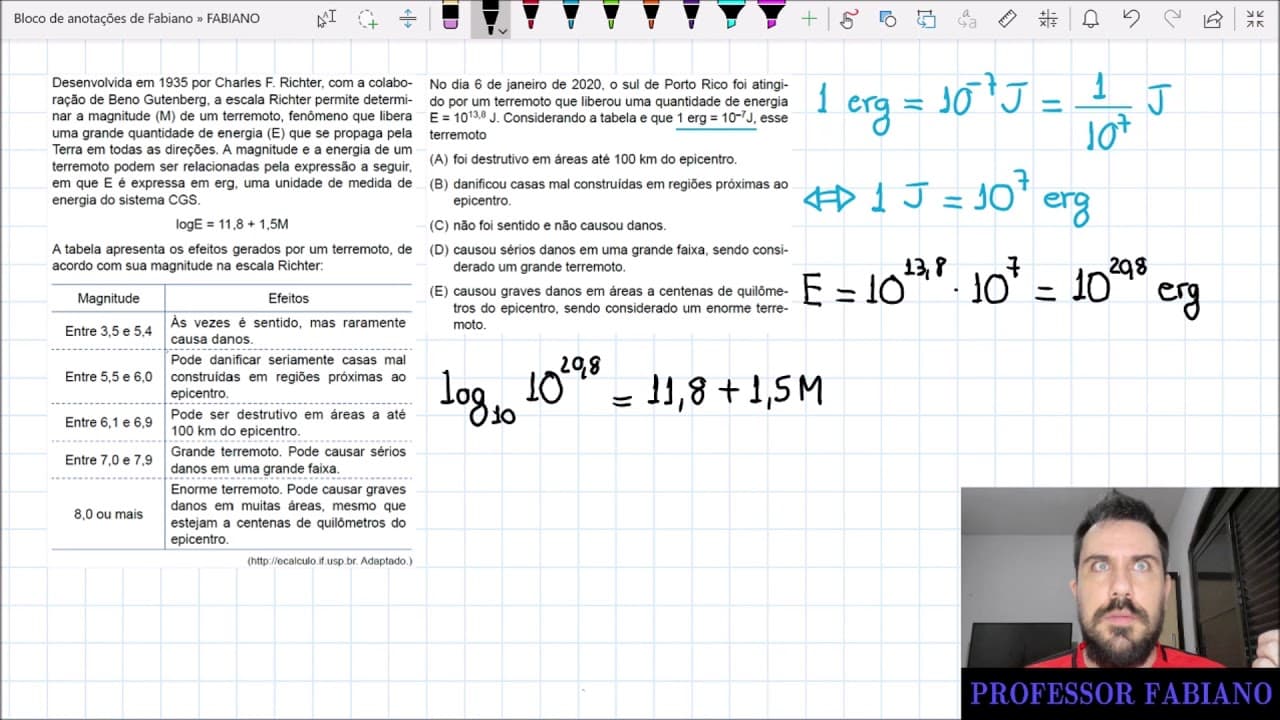 Bloco de anotações de Fabiano » FABIANO
Desenvolvida em 1935 por Charles F. Richter, com a colabo-
ração de Beno Gutenberg, a escala Richter permite determi-
nar a magnitude (M) de um terremoto, fenômeno que libera
uma grande quantidade de energia (E) que se propaga pela
Terra em todas as direções. A magnitude e a energia de um
terremoto podem ser relacionadas pela expressão a seguir,
em que E é expressa em erg, uma unidade de medida de
energia do sistema CGS.
logE = 11,8 + 1,5M
A tabela apresenta os efeitos gerados por um terremoto, de
acordo com sua magnitude na escala Richter:
Magnitude Efeitos
Entre 3,5 e 5,4 Às vezes é sentido, mas raramente
causa danos.
Entre 5,5 e 6,0 Pode danificar seriamente casas mal
construídas em regiões próximas ao
epicentro.
Entre 6,1 e 6,9 Pode ser destrutivo em áreas a até
100 km do epicentro.
Entre 7,0 e 7,9 Grande terremoto. Pode causar sérios
danos em uma grande faixa.
8,0 ou mais Enorme terremoto. Pode causar graves
danos em muitas áreas, mesmo que
estejam a centenas de quilômetros do
epicentro.
(http://ecalculo.if.usp.br. Adaptado.)
No dia 6 de janeiro de 2020, o sul de Porto Rico foi atingi-
do por um terremoto que liberou uma quantidade de energia
E = 10^13,8 J. Considerando a tabela e que 1 erg = 10^−7J, esse
terremoto
(A) foi destrutivo em áreas até 100 km do epicentro.
(B) danificou casas mal construídas em regiões próximas ao
epicentro.
(C) não foi sentido e não causou danos.
(D) causou sérios danos em uma grande faixa, sendo consi-
derado um grande terremoto.
(E) causou graves danos em áreas a centenas de quilôme-
tros do epicentro, sendo considerado um enorme terre-
moto.
1 erg = 10^−7 J = 1/10^7 J
⇔ 1 J = 10^7 erg
E = 10^13,8 · 10^7 = 10^20,8 erg
log_10 10^20,8 = 11,8 + 1,5M
PROFESSOR FABIANO